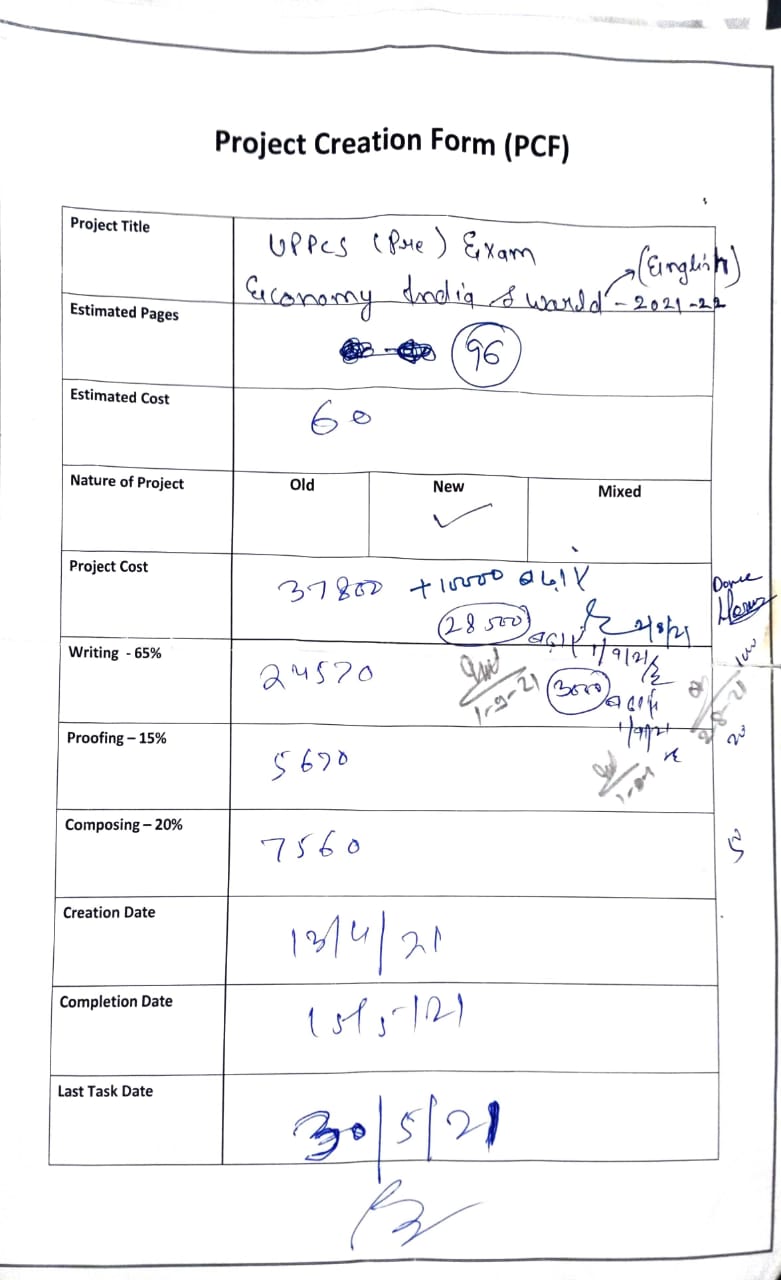 Project Creation Form (PCF)
Project Title
UPPCS (Pre) Exam
(English)
Economy India & World - 2021-22
Estimated Pages
96
Estimated Cost
60
Nature of Project
Old
New
Mixed
Project Cost
37800 + 10000
Done
28500
Writing - 65%
24570
1/9/21
1-9-21
3000
Proofing – 15%
5670
1/9/21
Composing – 20%
7560
Creation Date
13/4/21
Completion Date
15/5/21
Last Task Date
30/5/21